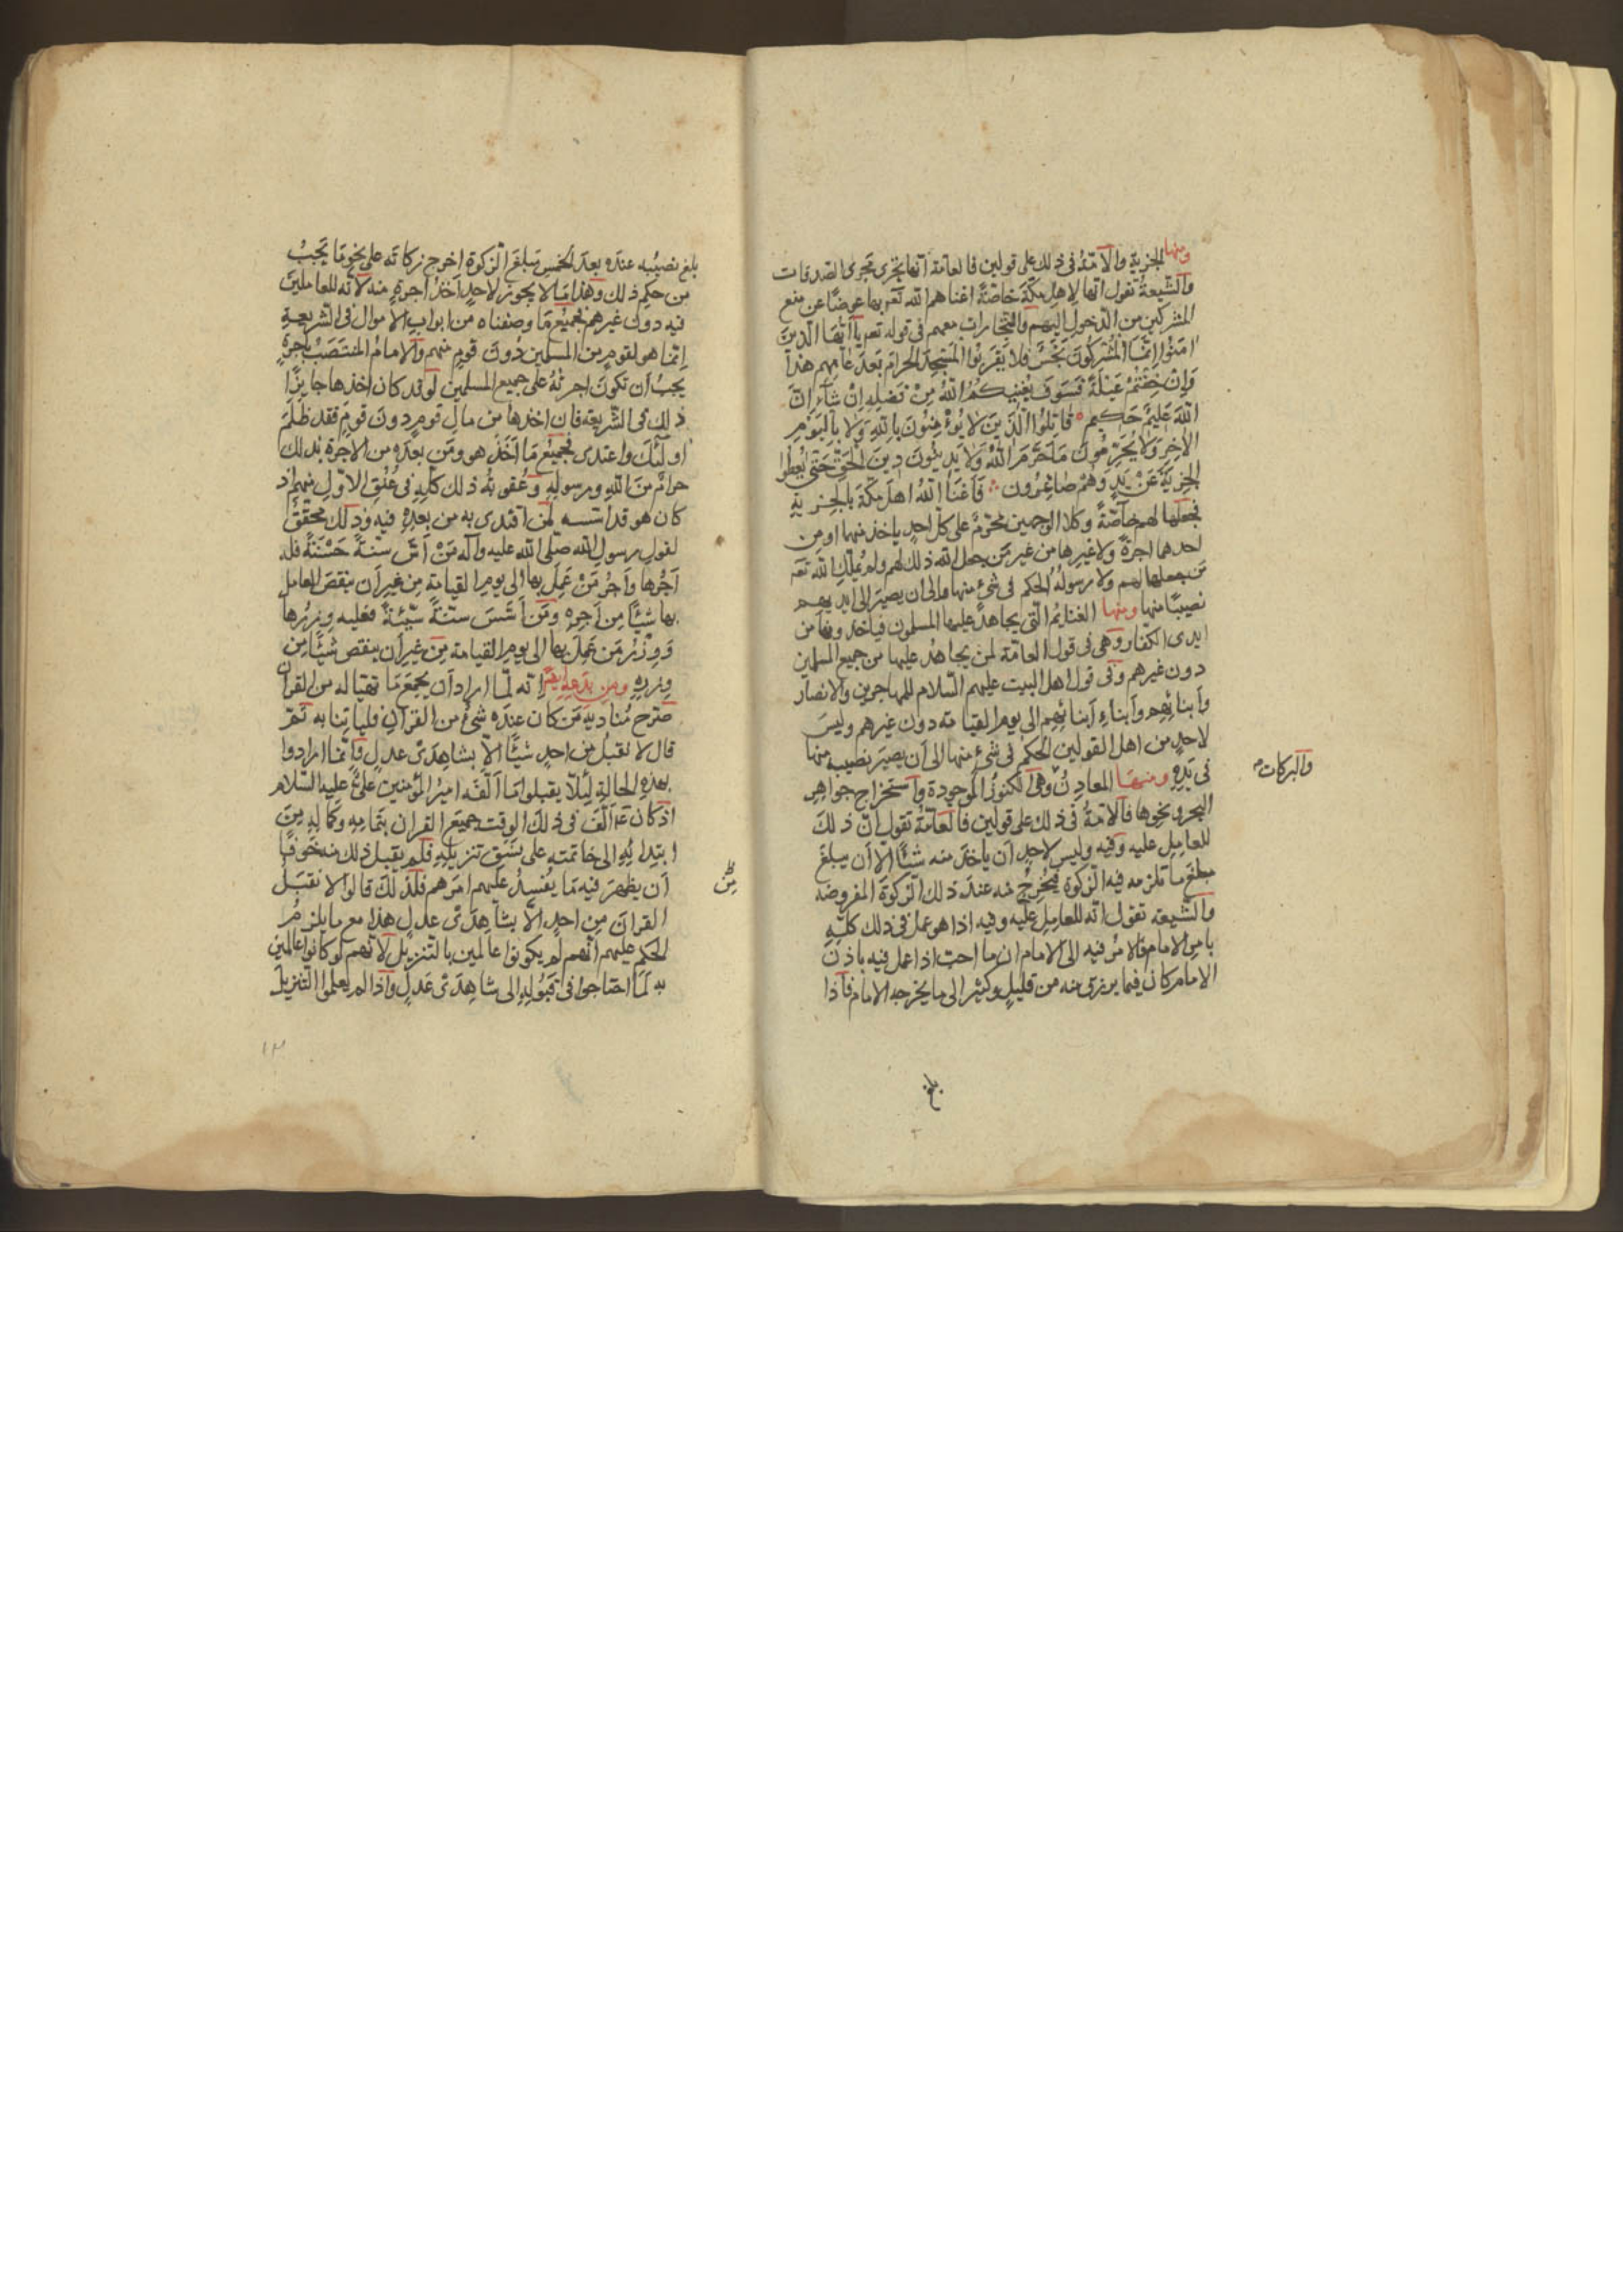 ومنها الجزية والامة فى ذلك على قولين فالعامة انها تجرى مجرى الصدقات
والشيعة تقول انها لاهل مكة خاصة اغناهم الله تعم بها عوضا عن منع
المشركين من الدخول اليهم والتجارات معهم فى قوله تعم يا ايها الذين
امنوا انما المشركون نجس فلا يقربوا المسجد الحرام بعد عامهم هذا
وان خفتم عيلة فسوف يغنيكم الله من فضله ان شاء ان
الله عليم حكيم ۰ قاتلوا الذين لا يؤمنون بالله ولا باليوم
الاخر ولا يحرمون ما حرم الله ولا يدينون دين الحق حتى يعطوا
الجزية عن يد وهم صاغرون ∴ فاغنا الله اهل مكة بالجزية
فجعلها لهم خاصة وكلا الوجهين محرم على كل احد ياخذ منها او من
احدهما اجرة ولا غيرها من غير من جعل الله ذلك لهم ولم يملك الله تعم
من جعلها لهم ولا رسوله الحكم فى شئ منها الى ان يصير الى ايديهم
نصيبا منها ومنها الغنايم التى يجاهد عليها المسلمون فياخذونها من
ايدى الكفار وهى فى قول العامة لمن يجاهد عليها من جميع المسلمين
دون غيرهم وفى قول اهل البيت عليهم السلام للمهاجرين والانصار
وابنائهم وابناء ابنائهم الى يوم القيامة دون غيرهم وليس
لاحد من اهل القولين الحكم فى شئ منها الى ان يصير نصيبه منها
فى يده ومنها المعادن وهى الكنوز الموجودة واستخراج جواهر
البحر ونحوها فالامة فى ذلك على قولين فالعامة تقول ان ذلك
للعامل عليه وفيه وليس لاحد ان ياخذ منه شيئا الا ان يبلغ
مبلغ ما تلزمه فيه الزكوة فيخرج منه عند ذلك الزكوة المفروضة
والشيعة تقول انه للعامل عليه وفيه اذا هو عمل فى ذلك كله
بامر الامام فالامر فيه الى الامام ان ما احب اذا عمل فيه باذن
الامام كان فيما يرزق منه من قليل وكثير الى ما يخرجه الامام فاذا
والبركات
بلغ
بلغ نصيبه عنده بعد الخمس مبلغ الزكوة اخرج زكاته على نحو ما يجب
من حكم ذلك وهذا مما لا يجوز لاحد اخذ اجرة منه لانه للعاملين
فيه دون غيرهم فجميع ما وصفناه من ابواب الاموال فى الشريعة
انما هو لقوم من المسلمين دون قوم منهم والامام المنتصب باجرة
يجب ان تكون اجرته على جميع المسلمين لو قد كان اخذها جايزا
ذلك فى الشريعة فان اخذها من مال قوم دون قوم فقد ظلم
اولئك واعتدى فجميع ما اخذ هو ومن بعده من الاجرة بذلك
حرام من الله ورسوله وعقوبة ذلك كله فى عنق الاول منهم اذ
كان هو قد اسسه لمن اقتدى به من بعده فيه وذلك محقق
لقول رسول الله صلى الله عليه وآله من اسس سنة حسنة فله
اجرها واجر من عمل بها الى يوم القيامة من غير ان ينقص العامل
بها شيئا من اجره ومن اسس سنة سيئة فعليه وزرها
ووزر من عمل بها الى يوم القيامة من غير ان ينقص شيئا من
وزره ومن بدعه ايضا انه لما اراد ان يجمع ما تهيا له من القران
صرخ مناديه من كان عنده شئ من القران فلياتنا به ثم
قال لا نقبل من احد شيئا الا بشاهدى عدل وانما ارادوا
بهذه الحالة لئلا يقبلوا ما الفه امير المؤمنين على عليه السلام
اذ كان الف فى ذلك الوقت جميع القران بتمامه وكماله من
ابتدائه الى خاتمته على نسق تنزيله فلم يقبل ذلك منه خوفا
ان يظهر فيه ما يفسد عليهم امرهم فلذلك قالوا لا نقبل
القران من احد الا بشاهدى عدل هذا مع ما يلزم
الحكم عليهم انهم لم يكونوا عالمين بالتنزيل لانهم لو كانوا عالمين
به لما احتاجوا فى قبوله الى شاهدى عدل واذا لم يعلموا التنزيل